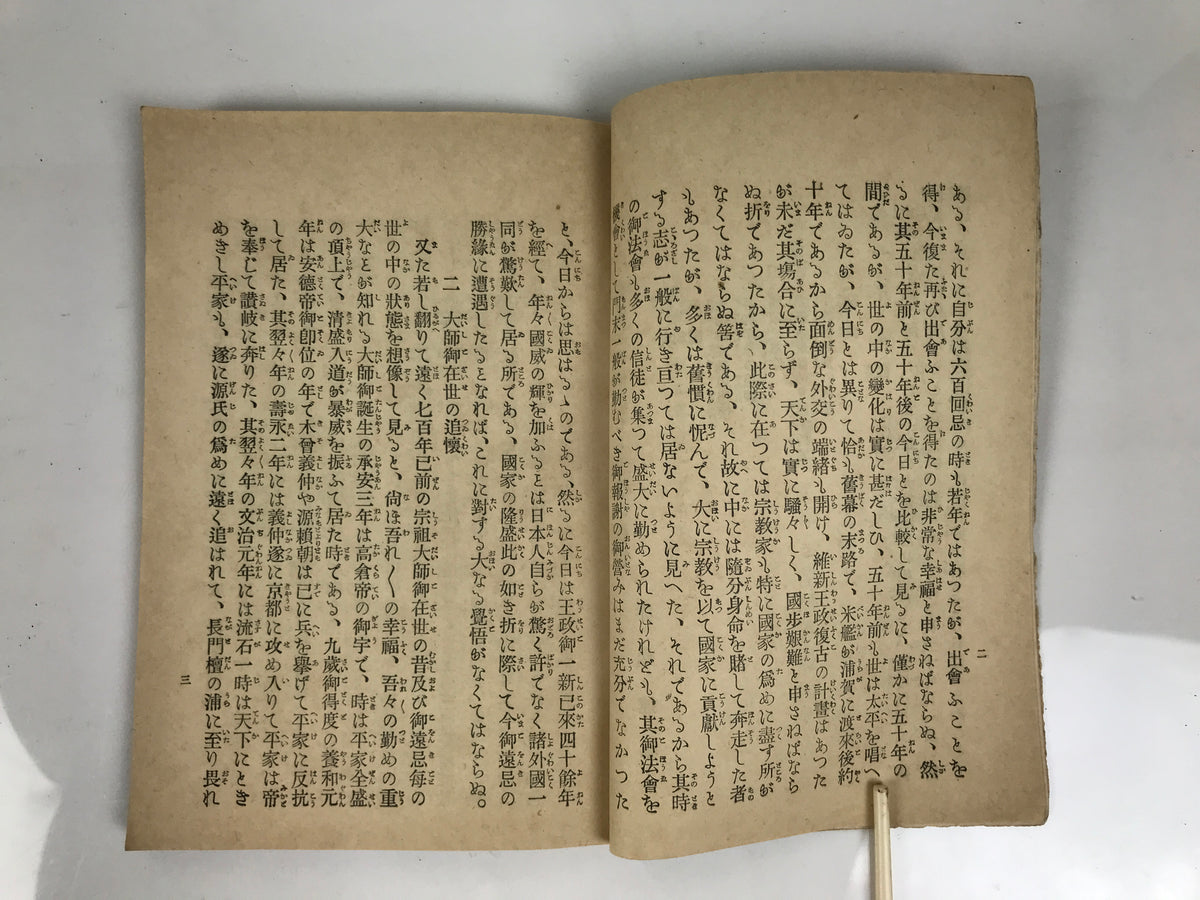 二
ある、それに自分は六百回忌の時も若年ではあつたが、出會ふことを
得、今復た再び出會ふことを得たのは非常な幸福と申さねばならぬ、然
るに其五十年前と五十年後の今日とを比較して見るに、僅かに五十年の
間であるが、世の中の變化は實に甚だしひ、五十年前も世は太平を唱へ
てはゐたが、今日とは異りて恰も舊幕の末路で、米艦が浦賀に渡來後約
十年であるから面倒な外交の端緒も開け、維新王政復古の計畫はあつた
が未だ其塲合に至らず、天下は實に騷々しく、國步艱難と申さねばなら
ぬ折であつたから、此際に在つては宗教家も特に國家の爲めに盡す所が
なくてはならぬ筈である、それ故に中には隨分身命を賭して奔走した者
もあつたが、多くは舊慣に怩んで、大に宗教を以て國家に貢獻しようと
する志が一般に行き亘つては居ないように見へた、それであるから其時
の御法會も多くの信徒が集つて盛大に勤められたけれども、其御法會を
機會として門末一般が勤むべき御報謝の御營みはまだ充分でなかつた
と、今日からは思はるゝのである、然るに今日は王政御一新已來四十餘年
を經て、年々國威の輝を加ふるとは日本人自らが驚く許でなく諸外國一
同が驚歎して居る所である、國家の隆盛此の如き折に際して今御遠忌の
勝緣に遭遇したるとなれば、これに對する大なる覺悟がなくてはならぬ。
二　大師御在世の追懷
又た若し翻りて遠く七百年已前の宗祖大師御在世の昔及び御遠忌每の
世の中の狀態を想像して見ると、尙ほ吾れ〱の幸福、吾々の勤めの重
大なとが知れる大師御誕生の承安三年は高倉帝の御宇で、時は平家全盛
の頂上で、清盛入道が暴威を振ふて居た時である、九歲御得度の養和元
年は安德帝御卽位の年で木曾義仲や源賴朝は已に兵を擧げて平家に反抗
して居た、其翌々年の壽永二年には義仲遂に京都に攻め入りて平家は帝
を奉じて讃岐に奔りた、其翌々年の文治元年には流石一時は天下にとき
めきし平家も、遂に源氏の爲めに遠く追はれて、長門檀の浦に至り畏れ
三